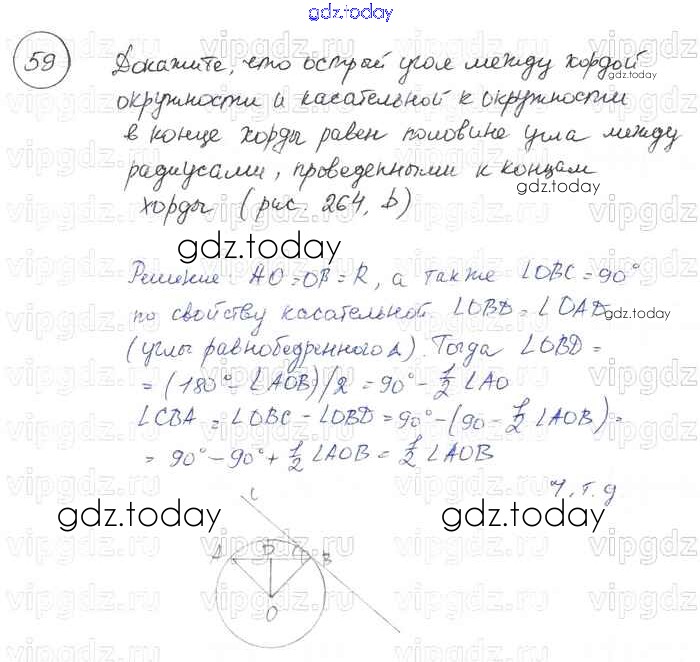 gdz.today
59 Докажите, что острый угол между хордой
gdz.today
окружности и касательной к окружности
в конце хорды равен половине угла между
радиусами, проведенными к концам
gdz.today
хорды (рис. 264, b)
gdz.today
Решение: AO=OB=R, а также ∠OBC=90°
по свойству касательной ∠OBD=∠OAD
gdz.today
(углы равнобедренного Δ). Тогда ∠OBD=
=(180°-∠AOB)/2=90°-1/2∠AO
∠CBA=∠OBC-∠OBD=90°-(90-1/2∠AOB)=
=90°-90°+1/2∠AOB=1/2∠AOB
ч.т.д
C
gdz.today gdz.today
A D B
O
vipgdz.ru